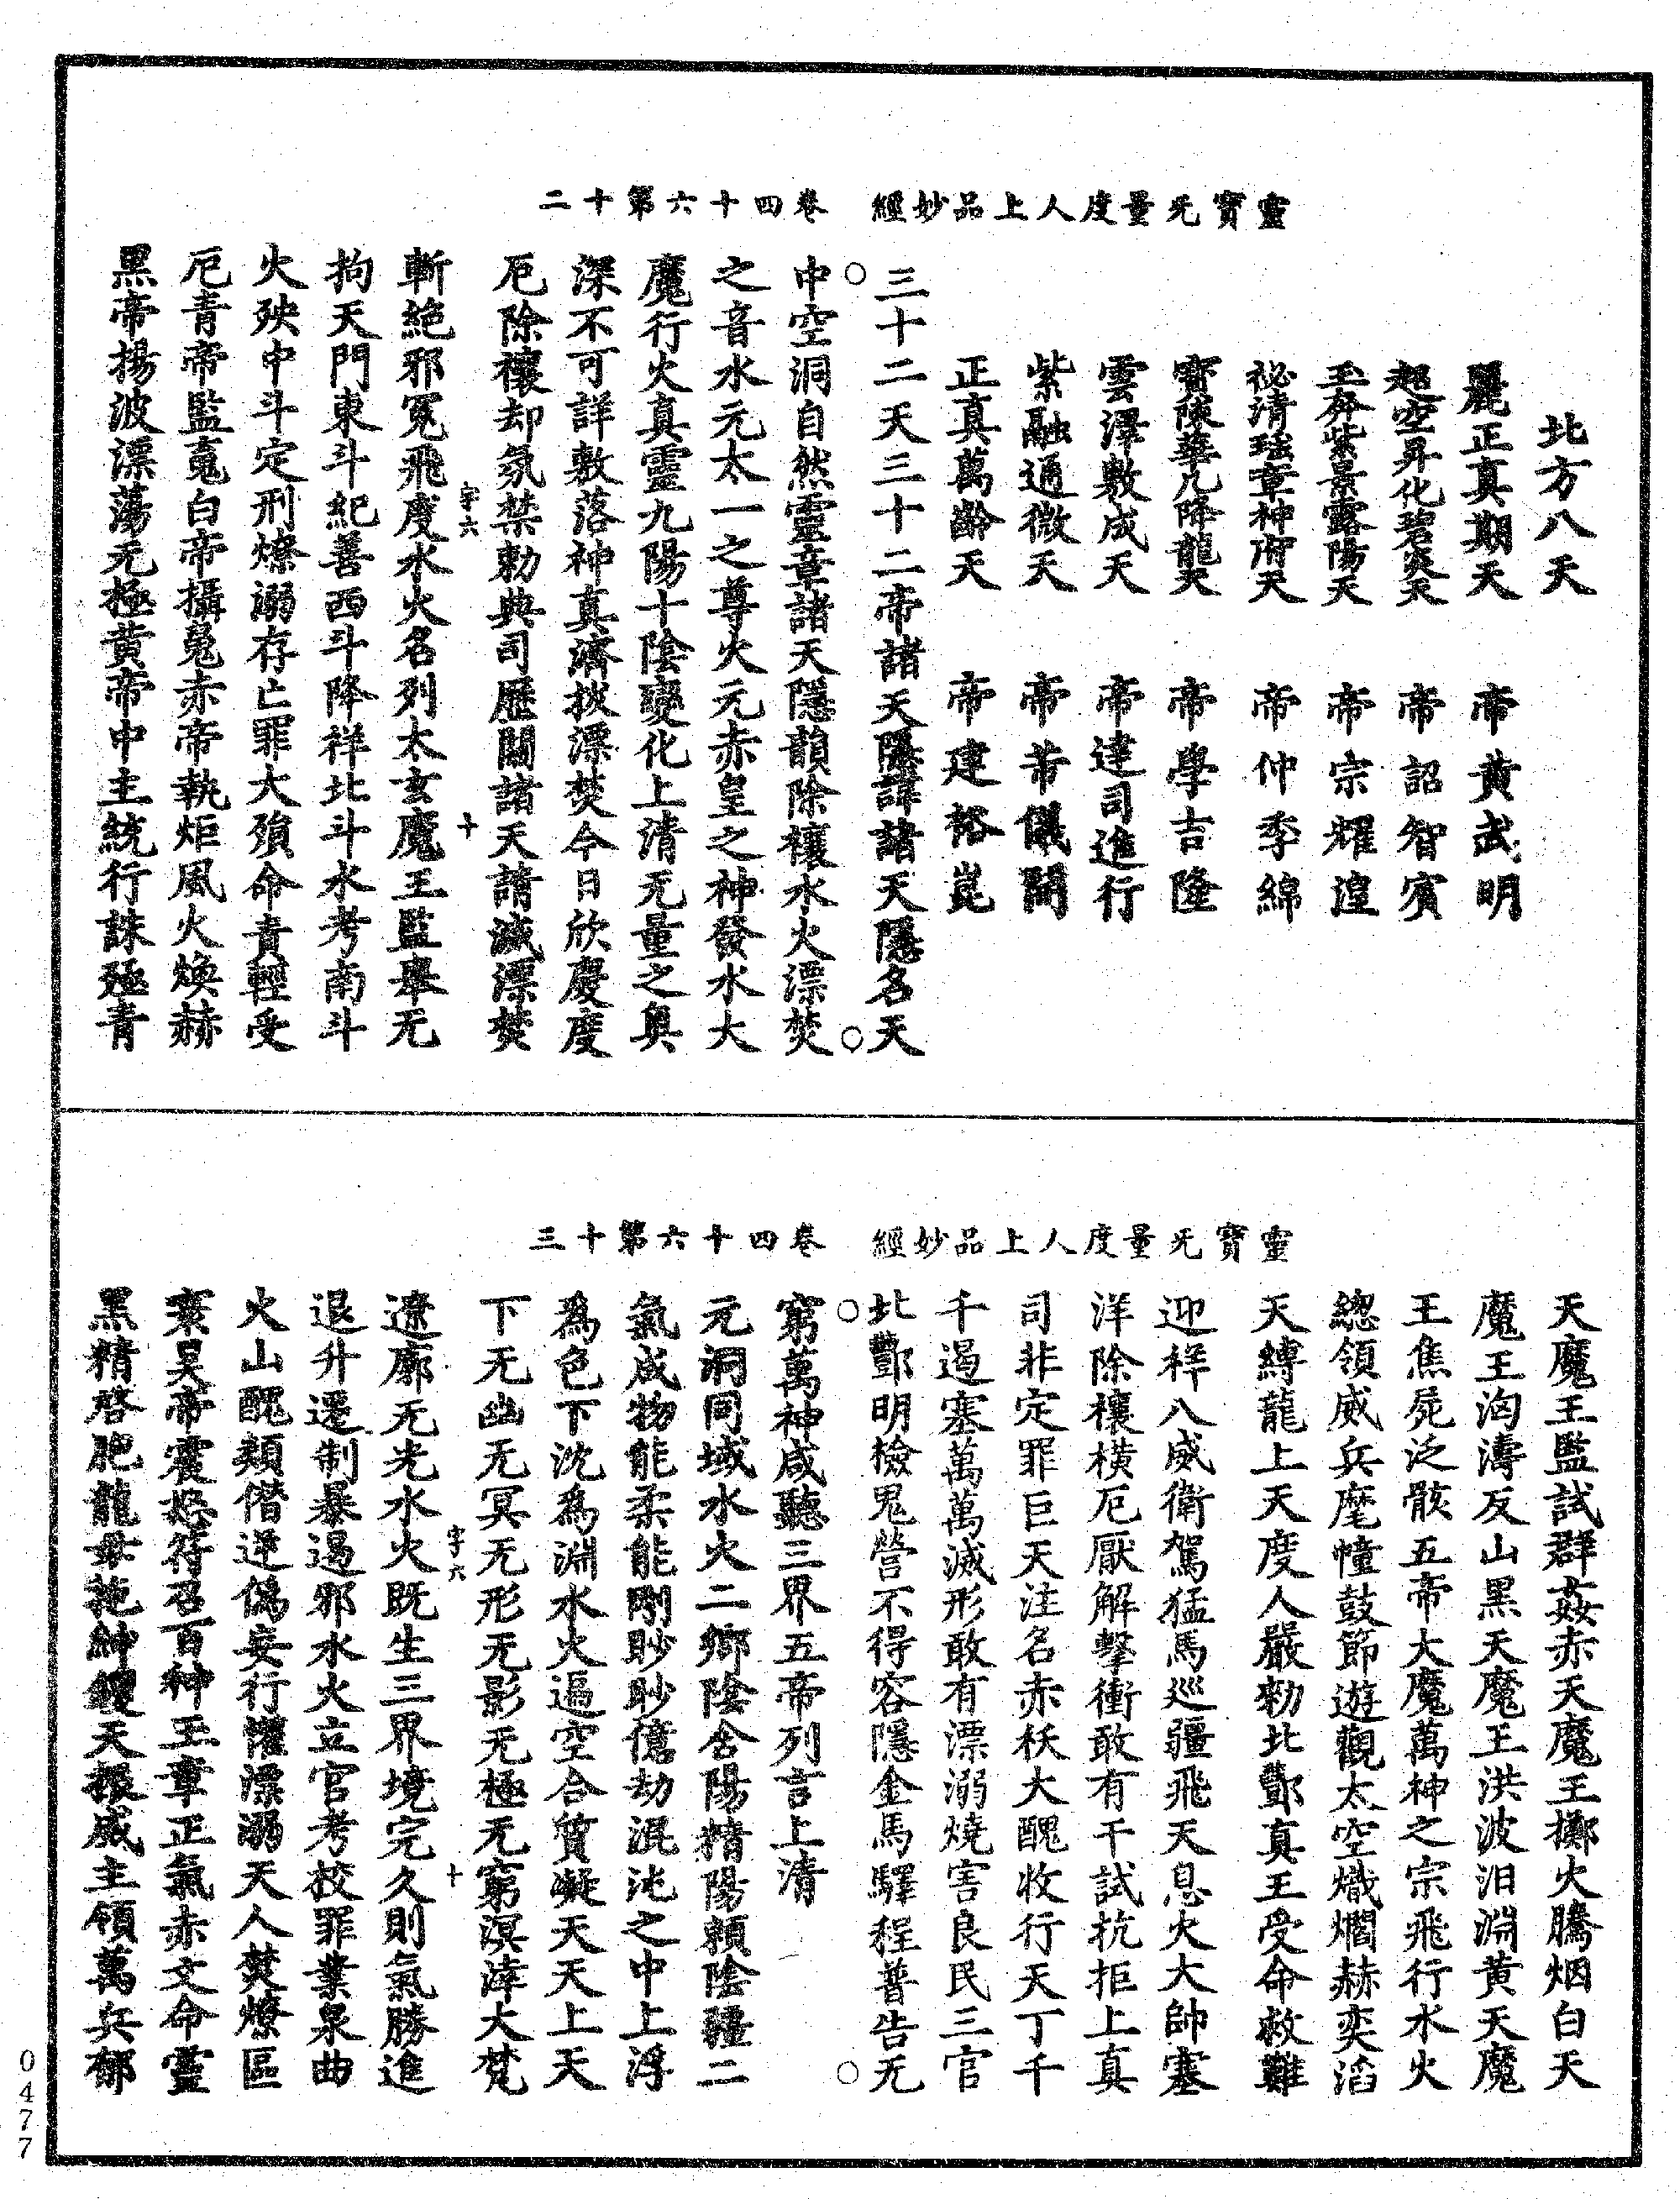 靈寶无量度人上品妙經　卷四十六第十二
北方八天
麗正真期天　帝黃武明
超空昇化碧炎天　帝詔智賓
玉奔紫景露陽天　帝宗耀湟
祕清瑤章神府天　帝仲季綿
寶陳華九降龍天　帝學吉隆
雲澤敷成天　帝達司進行
紫融通微天　帝芾儀闓
正真萬齡天　帝建㟏崑
三十二天三十二帝諸天隱諱諸天隱名天
中空洞自然靈章諸天隱韻除禳水火漂焚
之音水元太一之尊火元赤皇之神發水大
魔行火真靈九陽十陰變化上清无量之奧
深不可詳敷落神真濟拔漂焚今日欣慶度
厄除禳却氛禁勑典司歷關諸天請滅漂焚
斬絕邪冤飛度水火名列太玄魔王監舉无
字六　十
拘天門東斗紀善西斗降祥北斗水考南斗
火殃中斗定刑燎溺存亡罪大殞命責輕受
厄青帝監䰟白帝攝鬼赤帝執炬風火煥赫
黑帝揚波漂蕩无極黃帝中主統行誅殛青
靈寶无量度人上品妙經　卷四十六第十三
天魔王監試群姦赤天魔王擲火騰烟白天
魔王洶濤反山黑天魔王洪波汨淵黃天魔
王焦屍泛骸五帝大魔萬神之宗飛行水火
總領威兵麾幢鼓節遊觀太空熾爓赫奕滔
天縛龍上天度人嚴勑北酆真王受命救難
迎祥八威衛駕猛馬巡疆飛天息火大帥塞
洋除禳橫厄厭解擊衝敢有干試抗拒上真
司非定罪巨天注名赤袄大醜收行天丁千
千遏塞萬萬滅形敢有漂溺燒害良民三官
北酆明檢鬼營不得容隱金馬驛程普告无
窮萬神咸聽三界五帝列言上清
元洞同域水火二鄉陰含陽精陽賴陰疆二
氣成物能柔能剛眇眇億劫混沌之中上浮
為色下沈為淵水火逼空合質凝天天上天
下无幽无冥无形无影无極无窮溟涬大梵
遼廓无光水火既生三界境完久則氣勝進
字六　十
退升遷制暴遏邪水火立官考校罪業泉曲
火山醜類僭逆偽妄行灌漂溺天人焚燎區
寰昊帝震怒符召百神玉章正氣赤文命靈
黑精啓肥龍毋拖紳鍐天振威主領萬兵郁
0477